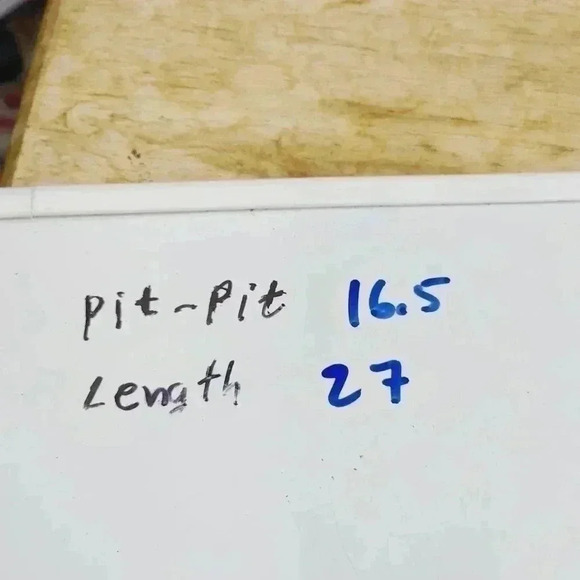 Pit-Pit 16.5
Length 27